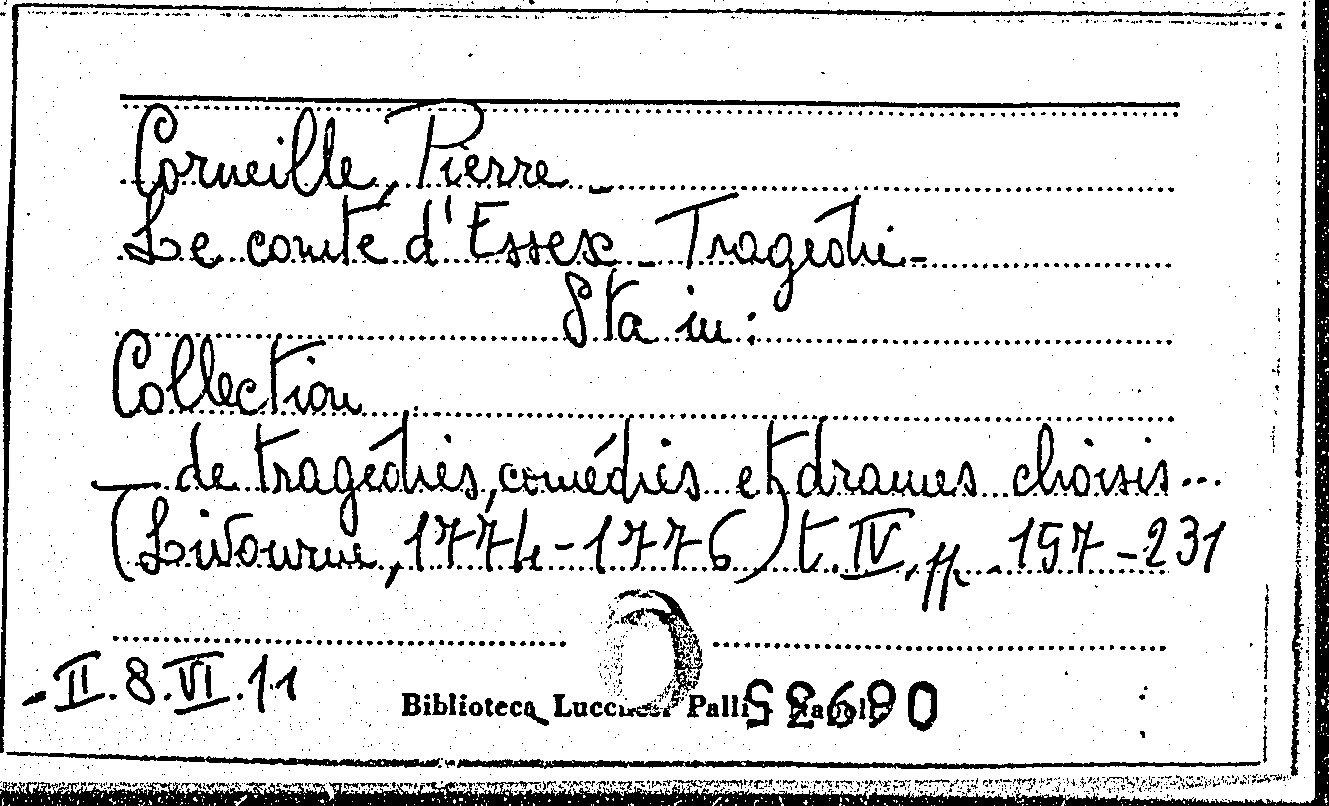 Corneille, Pierre_
Le comte d'Essex_Tragédie-
Sta in:
Collection
de tragédies, comédies et drames choisis...
(Livourne, 1774-1776) t. IV, pp. 197-231
-II.8.VI.11
Biblioteca Lucchesi Palli - Napoli
S2690